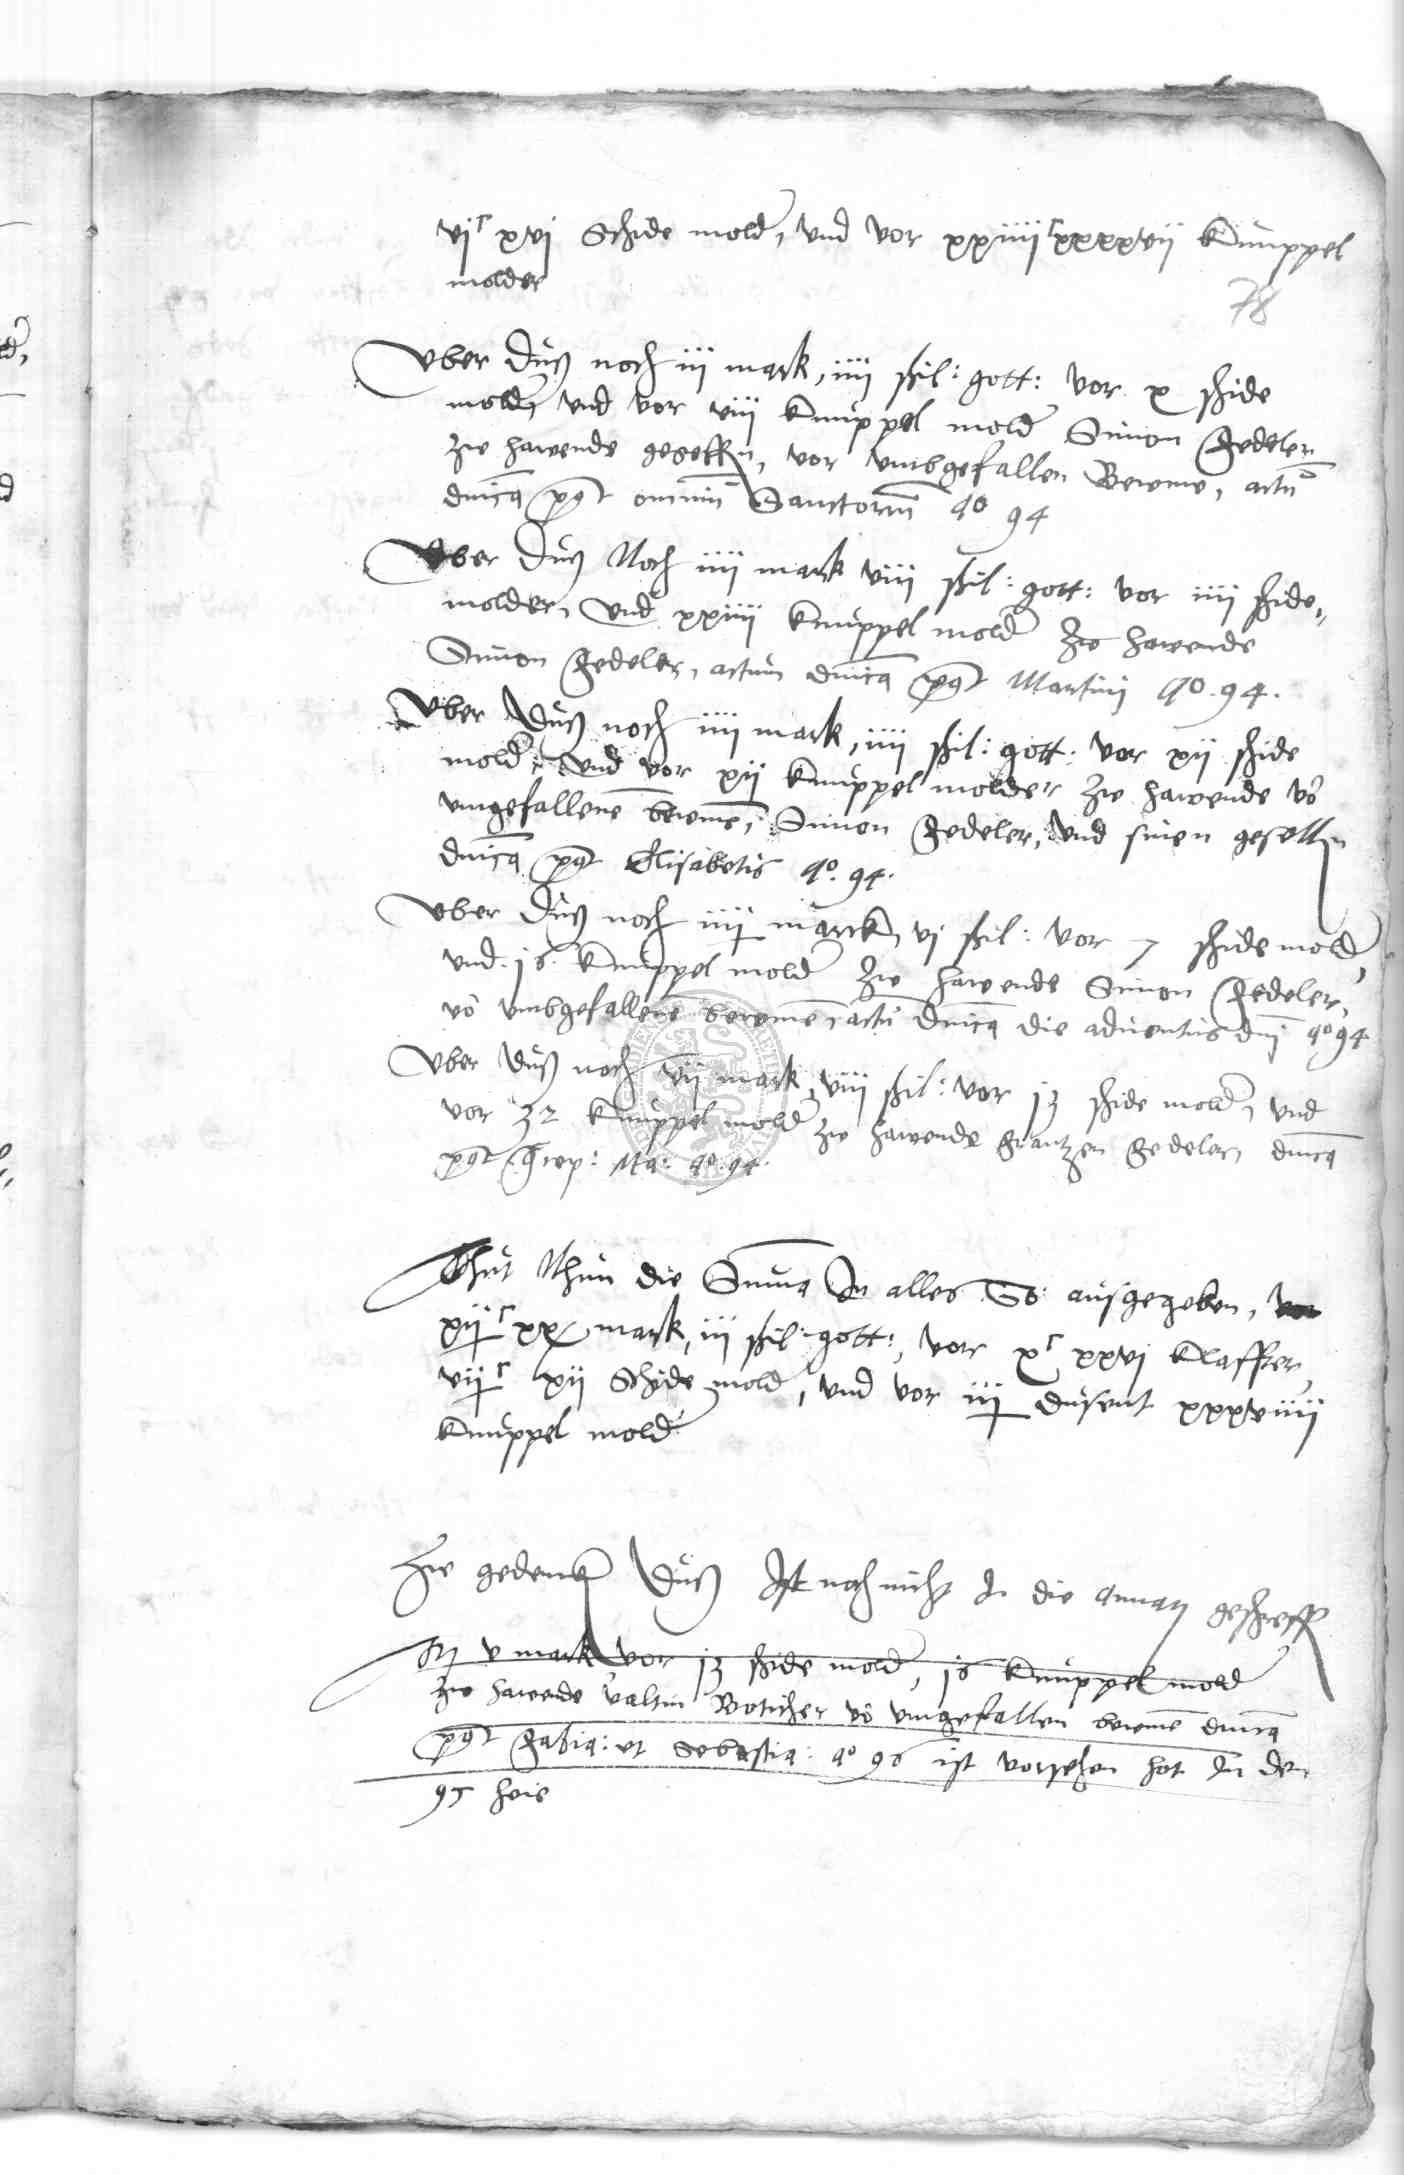 vjc xvj Schide mold, vnd vor xxiiijc xxxxvij knuppel
molder
78
Vber duß noch iij mark, iiij schil: gott: vor x schide
mold, vnd vor viij knuppel mold Simon Fedeler
zw hawende geseffn, vor vmbgefallen Bewme, actu
dnica post omniu Sanctorum ao 94
Vber duß Noch iiij mark viij schil: gott: vor iiij schide
molder, vnd xxiiij knuppel mold zw hawende
Simon Fedeler, actum dnica post Martini ao. 94.
Vber duß noch iiij mark, iiij schil: gott: vor xij schide
mold, vnd vor xij knuppel molder zw hawende vo
vmgefallene bewme, Simon Fedeler, vnd sinen geselln
dnica post Elisabetis ao. 94.
Vber duß noch iiij marck, vj schil: vor 7 schide mold,
vnd. 16. knuppel mold zw hawende Simon Fedeler,
vo vmbgefallene bewme, actu dnica die aduentus dni ao 94
Vber duß noch vij mark, viij schil: vor 13 schide mold, vnd
vor 32 knuppel mold zw hawende Frantzen Fedeler, dnica
post Ma: ao. 94.
Thut Nhun die Summa In alles ausgegeben,
xijc xx mark, iij schil: gott:, vor xc xxvj klaffter,
vijc xij Schide mold, vnd vor iij dusent xxxviiij
knuppel mold
Zw gedencken duß Ist noch nicht In die geschreffn
It v mark vor 13 schide mold, 16 knuppel mold
zw hawende valtin Boticher vo vmgefallen bewme dnica
post Fabia: et Sebastia: ao 96 ist vorsehen hot In den
95 hore